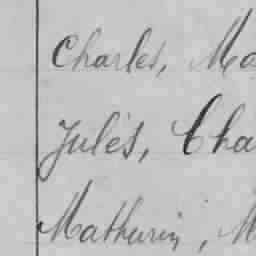 Charles, Ma
Jules, Cha
Mathurin, M